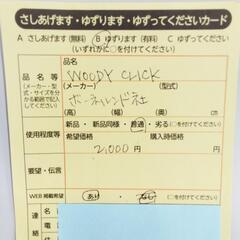 さしあげます・ゆずります・ゆずってくださいカード
A さしあげます（無料） B ゆずります（有料） C ゆずってください
（いずれかに○を付けてください）
品名等
（メーカー・型式・サイズを分かる範囲で記入してください）
品名
WOODY CLICK
（メーカー） （型式）
ボーネルンド社
（高） （幅） （
使用程度等
新品・新品同様・普通・劣る（○を付けてください）
希望価格 購入時価格
2,000円
要望・伝言
WEB掲載希望 あり・なし（○を付けてください）
連絡
住所
氏名
電話